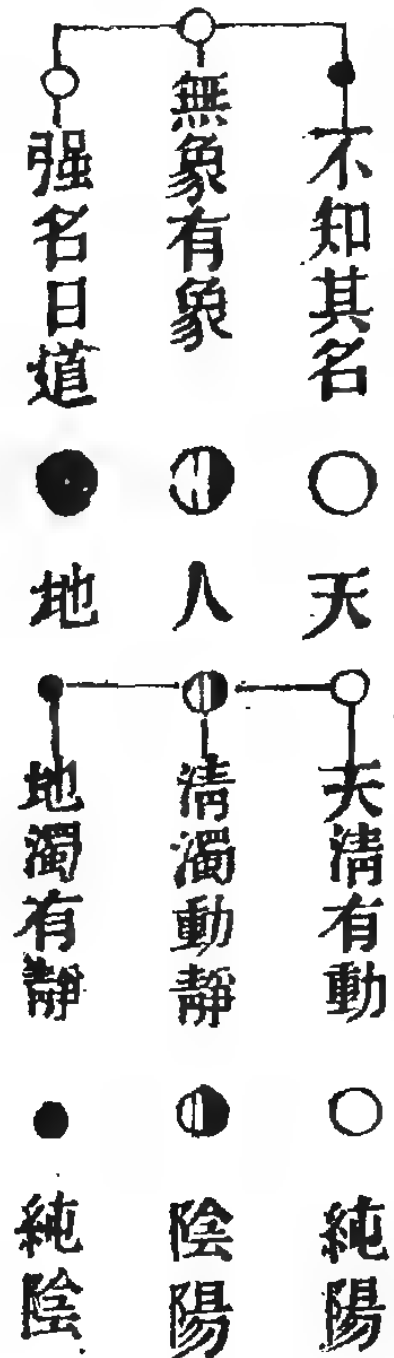 不知其名
無象有象
强名曰道
天
人
地
天清有動
清濁動靜
地濁有靜
純陽
陰陽
純陰